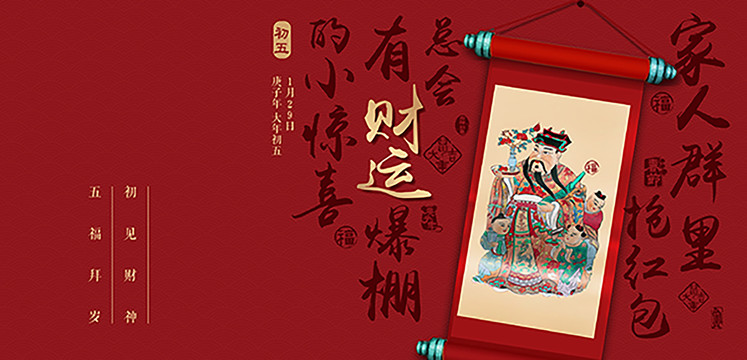 家人群里
抢红包
总会
有财运爆棚
的小惊喜
初五
1月29日
庚子年 大年初五
初见财神
五福拜岁
福
福
福